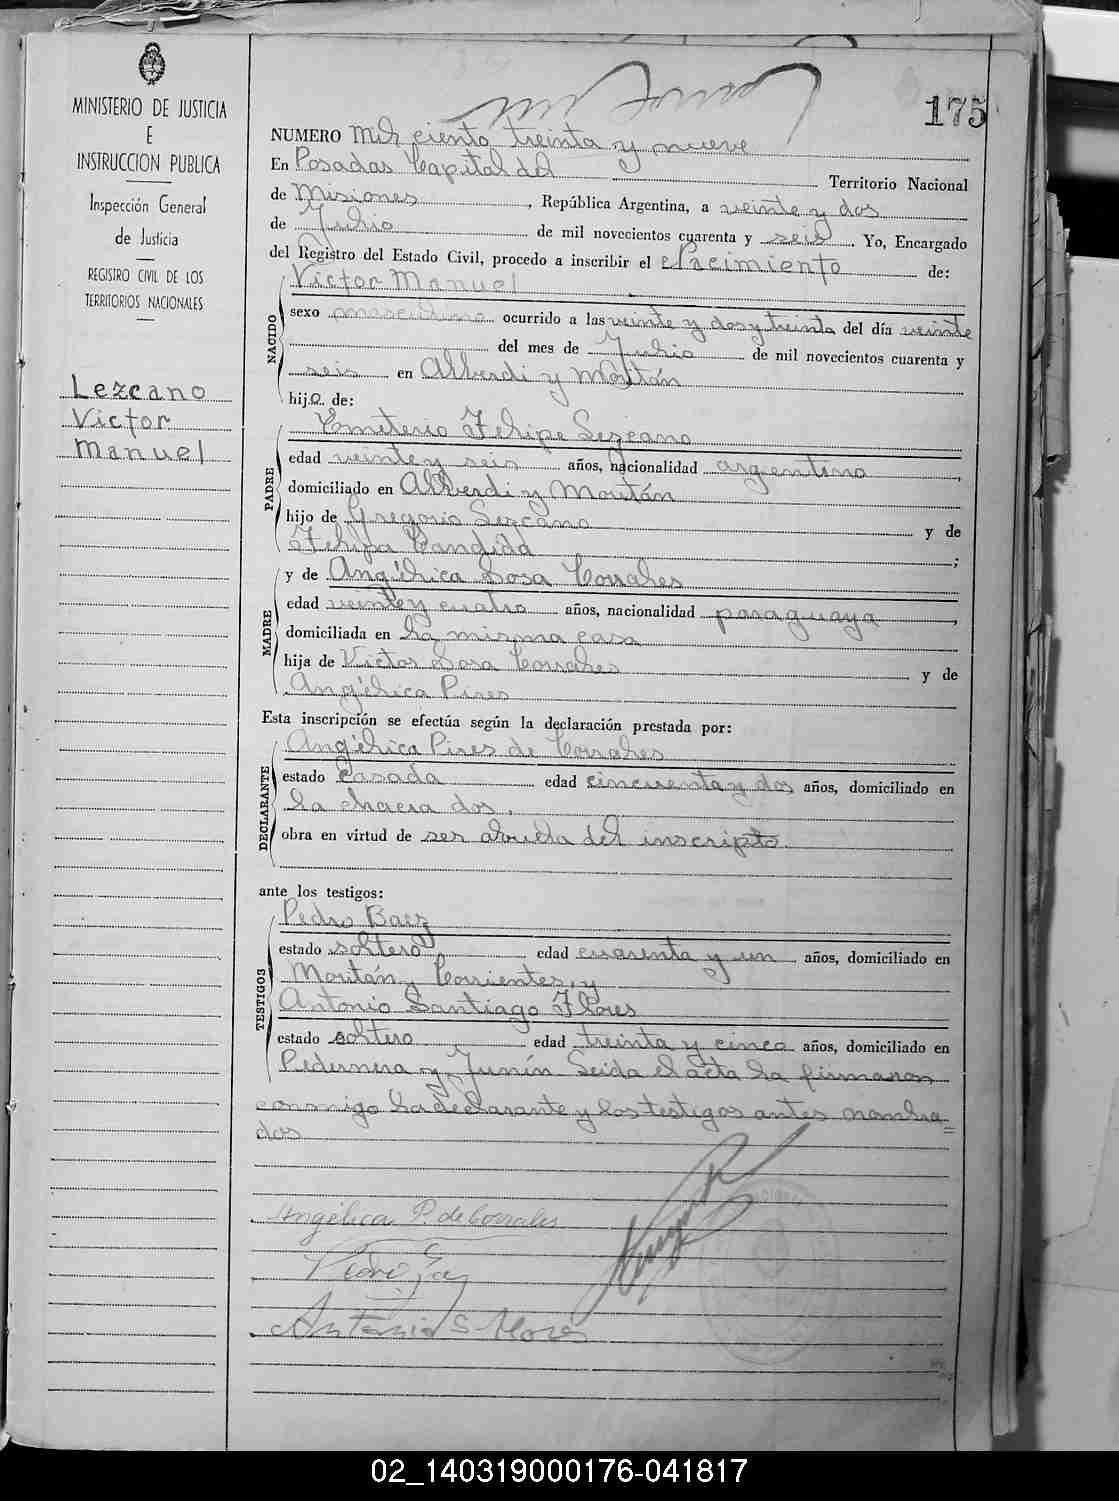 MINISTERIO DE JUSTICIA
E
INSTRUCCION PUBLICA
Inspección General
de Justicia
REGISTRO CIVIL DE LOS
TERRITORIOS NACIONALES
Lezcano
Victor
Manuel
175
NUMERO Mil ciento treinta y nueve
En Posadas Capital del Territorio Nacional
de Misiones, República Argentina, a veinte y dos
de Julio de mil novecientos cuarenta y seis. Yo, Encargado
del Registro del Estado Civil, procedo a inscribir el Nacimiento de:
NACIDO
Victor Manuel
sexo masculino ocurrido a las veinte y dos y treinta del día veinte
del mes de Julio de mil novecientos cuarenta y
seis en Alberdi y Moritán
hijo de:
PADRE
Emeterio Felipe Lezcano
edad veinte y seis años, nacionalidad argentino,
domiciliado en Alberdi y Moritán
hijo de Gregorio Lezcano y de
Felipa Candida;
MADRE
y de Angélica Sosa Corrales
edad veinte y cuatro años, nacionalidad paraguaya,
domiciliada en la misma casa
hija de Victor Sosa Corrales y de
Angélica Pires
Esta inscripción se efectúa según la declaración prestada por:
DECLARANTE
Angélica Pires de Corrales
estado casada edad cincuenta y dos años, domiciliado en
la chacra dos.
obra en virtud de ser abuela del inscripto.
ante los testigos:
TESTIGOS
Pedro Baez
estado soltero edad cuarenta y un años, domiciliado en
Moritán y Corrientes, y
Antonio Santiago Flores
estado soltero edad treinta y cinco años, domiciliado en
Pedernera y Junín Leida el acta la firmaron
conmigo la declarante y los testigos antes nombra=
dos
Angélica P. de Corrales
Antonio S Flores
02_140319000176-041817